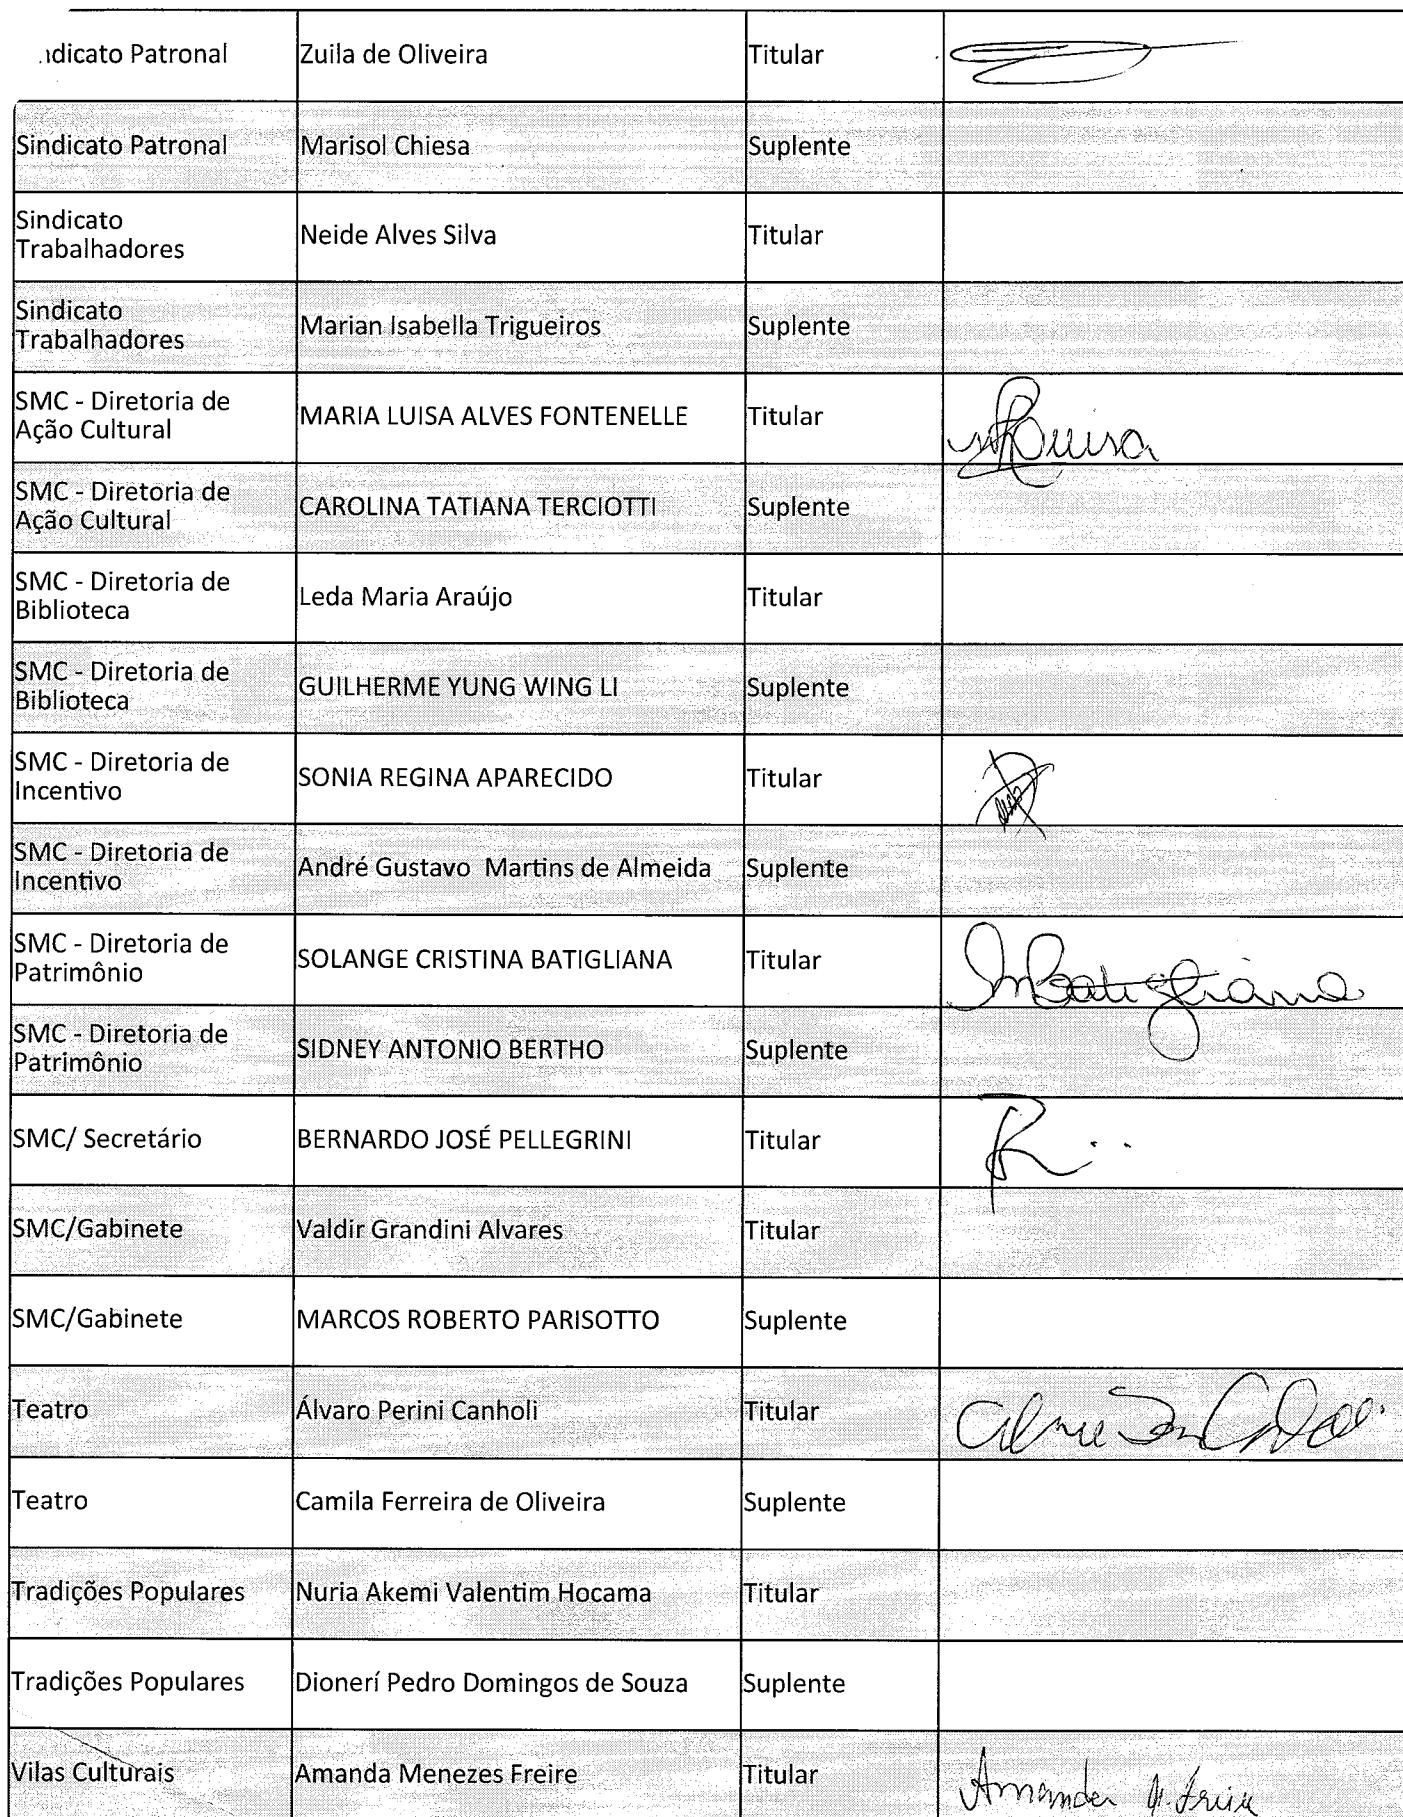 ndicato Patronal Zuila de Oliveira Titular
Sindicato Patronal Marisol Chiesa Suplente
Sindicato
Trabalhadores Neide Alves Silva Titular
Sindicato
Trabalhadores Marian Isabella Trigueiros Suplente
SMC - Diretoria de
Ação Cultural MARIA LUISA ALVES FONTENELLE Titular Luisa
SMC - Diretoria de
Ação Cultural CAROLINA TATIANA TERCIOTTI Suplente
SMC - Diretoria de
Biblioteca Leda Maria Araújo Titular
SMC - Diretoria de
Biblioteca GUILHERME YUNG WING LI Suplente
SMC - Diretoria de
Incentivo SONIA REGINA APARECIDO Titular
SMC - Diretoria de
Incentivo André Gustavo Martins de Almeida Suplente
SMC - Diretoria de
Patrimônio SOLANGE CRISTINA BATIGLIANA Titular Batigliana
SMC - Diretoria de
Patrimônio SIDNEY ANTONIO BERTHO Suplente
SMC/ Secretário BERNARDO JOSÉ PELLEGRINI Titular
SMC/Gabinete Valdir Grandini Alvares Titular
SMC/Gabinete MARCOS ROBERTO PARISOTTO Suplente
Teatro Álvaro Perini Canholi Titular
Teatro Camila Ferreira de Oliveira Suplente
Tradições Populares Nuria Akemi Valentim Hocama Titular
Tradições Populares Dionerí Pedro Domingos de Souza Suplente
Vilas Culturais Amanda Menezes Freire Titular Amanda M. Freire